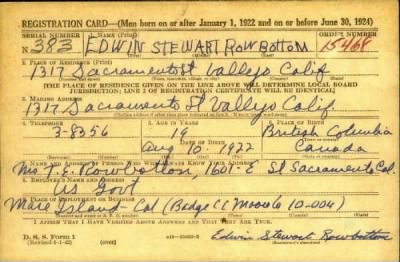 REGISTRATION CARD—(Men born on or after January 1, 1922 and on or before June 30, 1924)
SERIAL NUMBER 1. NAME (Print) ORDER NUMBER
N 383 EDWIN STEWART RowBottom 15468
(First) (Middle) (Last)
2. PLACE OF RESIDENCE (Print)
1317 Sacramento St Vallejo Calif
[THE PLACE OF RESIDENCE GIVEN ON THE LINE ABOVE WILL DETERMINE LOCAL BOARD
JURISDICTION; LINE 2 OF REGISTRATION CERTIFICATE WILL BE IDENTICAL]
3. MAILING ADDRESS
1317 Sacramento St Vallejo Calif
4. TELEPHONE 5. AGE IN YEARS 6. PLACE OF BIRTH
3-8356 19 British Columbia
DATE OF BIRTH
Aug 10. 1922 Canada
7. NAME AND ADDRESS OF PERSON WHO WILL ALWAYS KNOW YOUR ADDRESS
Mrs T. E. Rowbottom, 1601-E St Sacramento Cal.
8. EMPLOYER'S NAME AND ADDRESS
US Govt
9. PLACE OF EMPLOYMENT OR BUSINESS
Mare Island - Cal (Badge CC M0006 10-004)
I AFFIRM THAT I HAVE VERIFIED ABOVE ANSWERS AND THAT THEY ARE TRUE.
D. S. S. Form 1
(Revised 6-1-42) (over)
Edwin Stewart Rowbottom